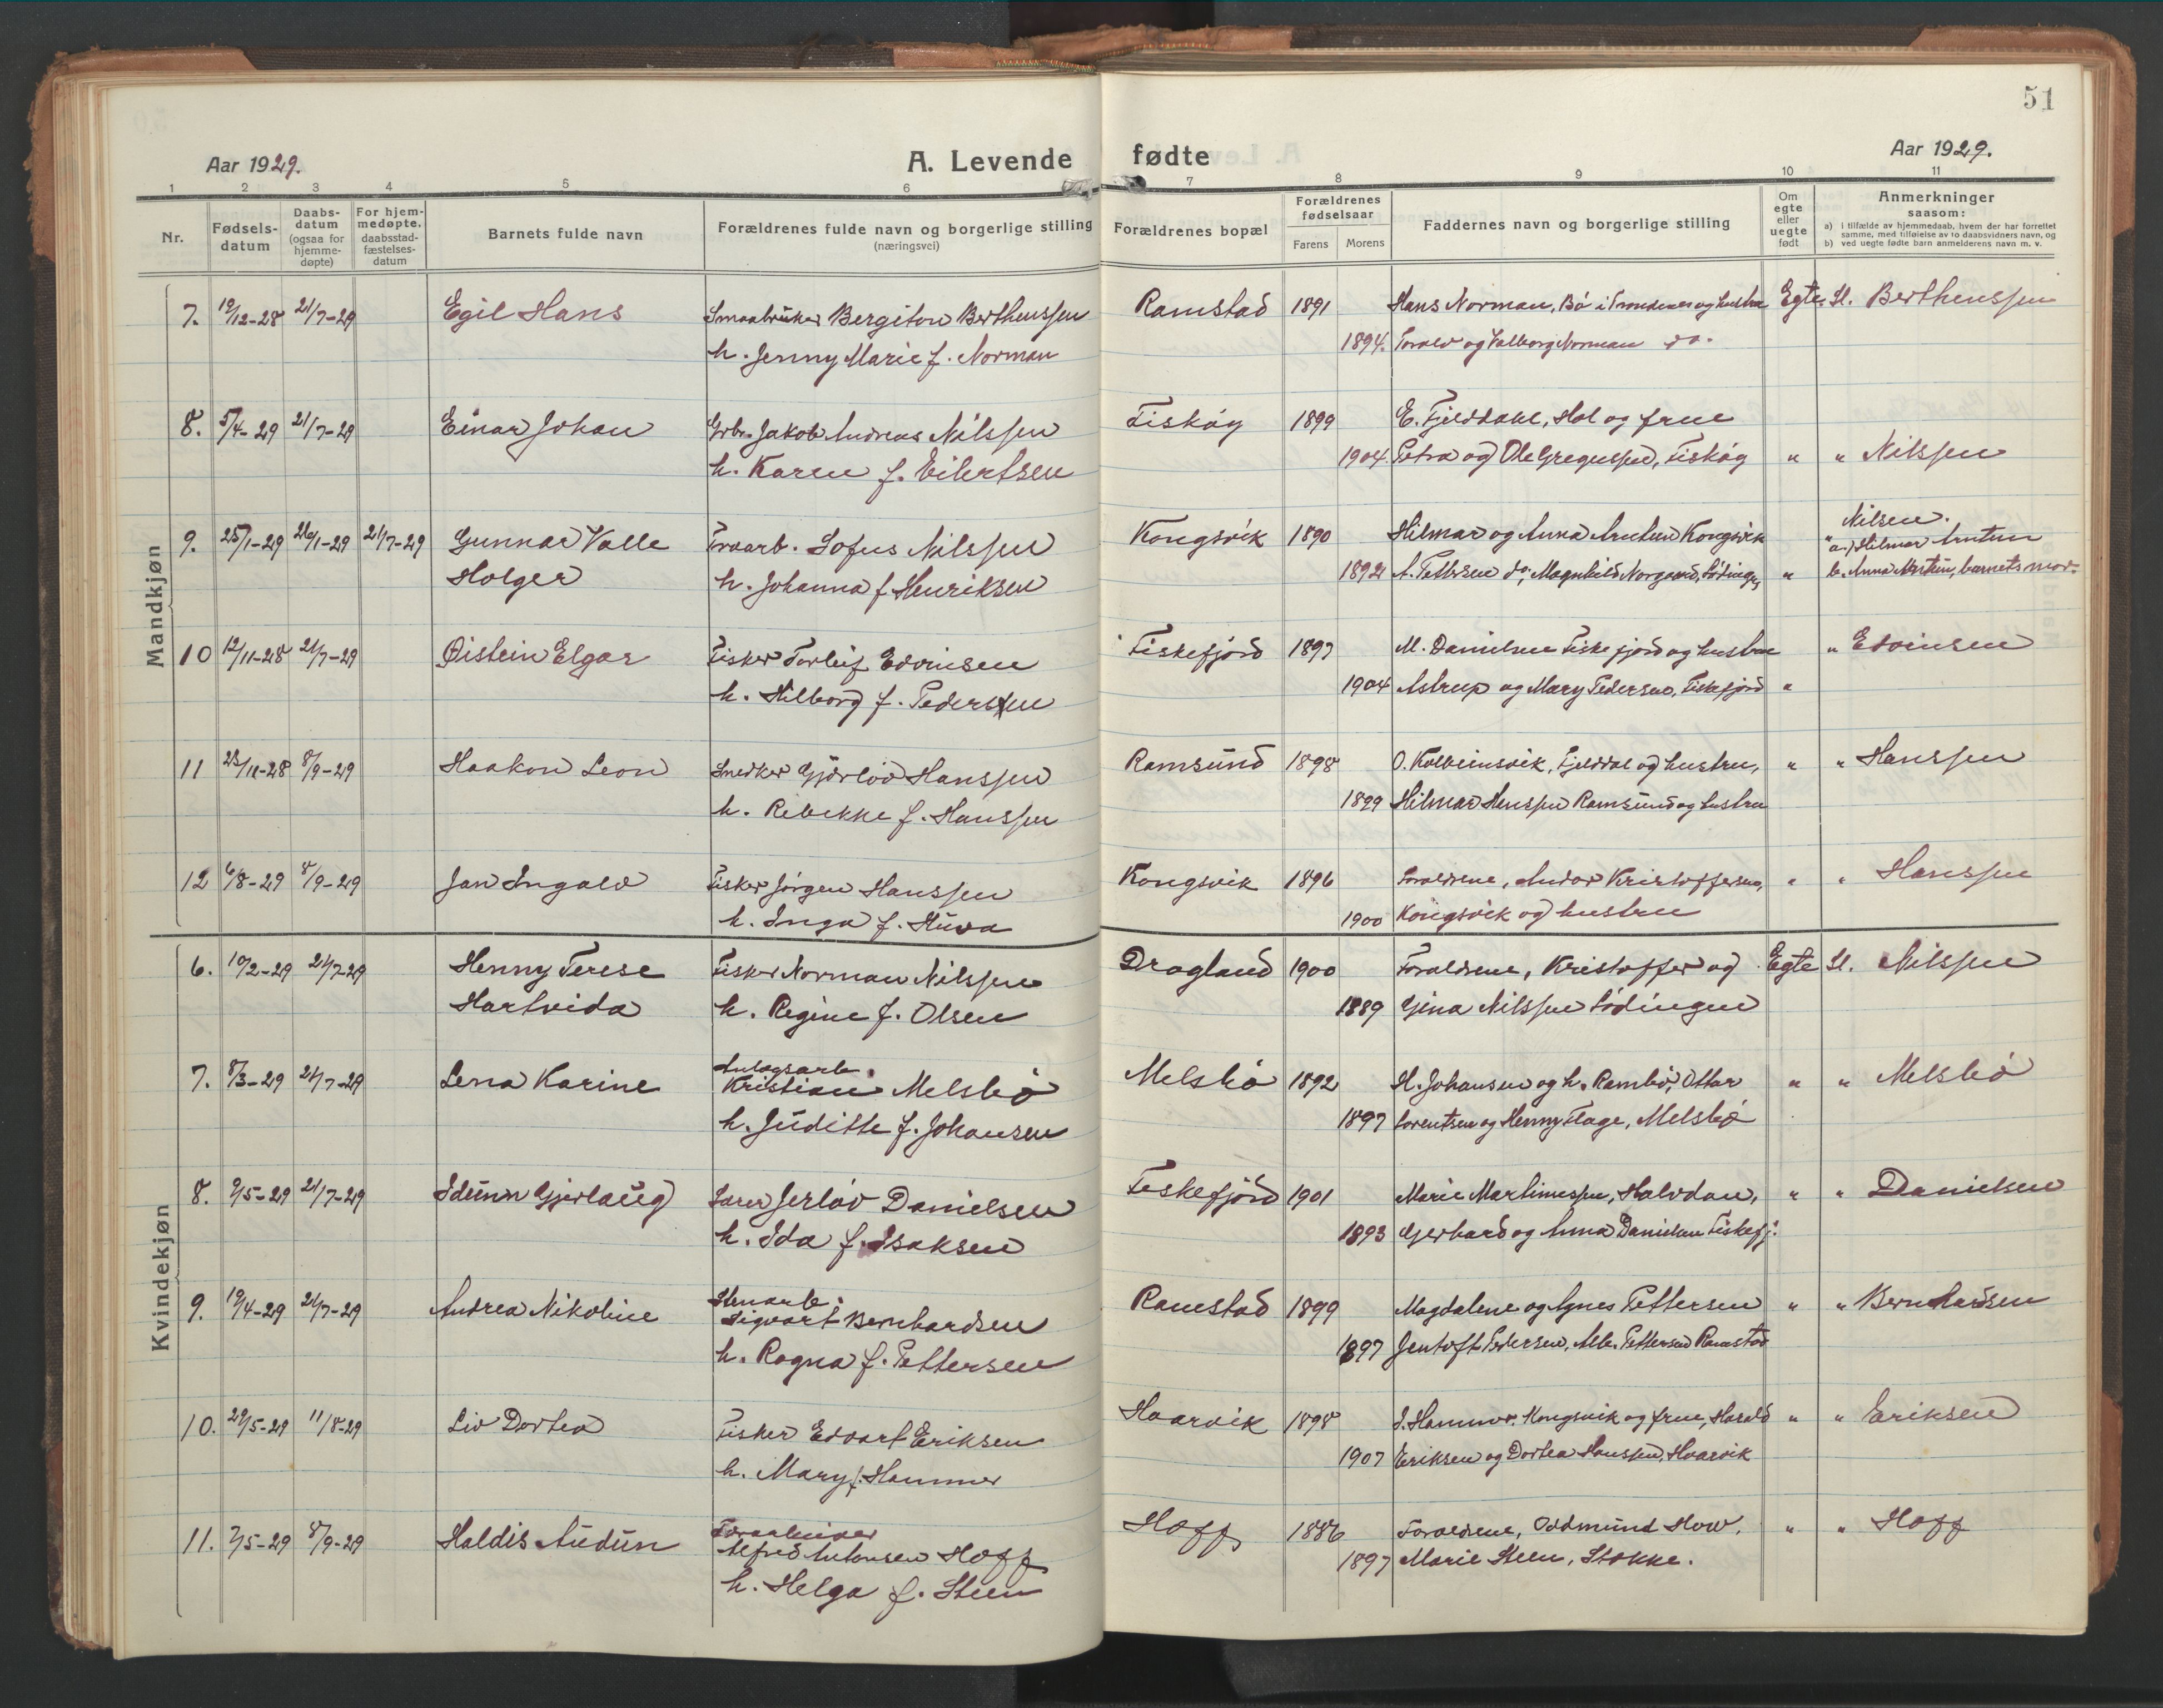 51
Aar 1929.
A. Levende fødte
Aar 1929.
1 2 3 4 5 6 7 8 9 10 11
Nr.
Fødsels-
datum
Daabs-
datum
(ogsaa for
hjemme-
døpte)
For hjem-
medøpte.
daabsstad-
fæstelses-
datum
Barnets fulde navn
Forældrenes fulde navn og borgerlige stilling
(næringsvei)
Forældrenes bopæl
Forældrenes
fødselsaar
Farens Morens
Faddernes navn og borgerlige stilling
Om
egte
eller
uegte
født
Anmerkninger
saasom:
a) i tilfælde av hjemmedaab, hvem der har forrettet
samme, med tilføielse av to daabsvidners navn, og
b) ved uegte fødte barn anmelderens navn m. v.
Mandkjøn
7. 19/12-28 21/7-29 Egil Hans Smaabruker Bergiton Berthenssen Ramstad 1891 Hans Norman, Bø i Trondenes og hustru Egte Sl. Berthenssen
h. Jenny Marie f. Norman 1894. Torald og Valborg Norman do.
8. 5/4-29 21/7-29 Einar Johan Grbr. Jakob Andreas Nilssen Fiskøy 1899 E. Fjelddahl, Hol og frue
h. Karen f. Eilertsen 1904. Petra og Ole Gregussen, Fiskøy " " Nilssen
9. 25/1-29 26/1-29 21/7-29 Gunnar Valle Sofus Nilssen Kongsvik 1890 Hilmar og Anna Arntsen Kongsvik Nilsen.
" a.) Hilmar Arntsen
Holger h. Johanna f. Henriksen 1892 A. Pettersen do; Magnhild Norgaard, Lødingen, " b. Anna Arntsen, barnets mor.
10 12/11-28 21/7-29 Øistein Elgar Fisker Torleif Edvinsen Fiskefjord 1897 M. Danielsen Fiskefjord og hustru " Edvinsen
h. Hilborg f. Pedersen 1904 Astrup og Mary Pedersen, Fiskefjord "
11 23/11-28 8/9-29 Haakon Leon Snedker Gjørløv Hanssen Ramsund 1898 O. Kolbeinsvik, Fjelddal og hustru, " " Hanssen
h. Rebekke f. Hanssen 1899 Hilmar Hanssen Ramsund og hustru
12 6/8-29 8/9-29 Jan Ingald Fisker Jørgen Hanssen Kongsvik 1896 Foraldrene, Andor Kristoffersen, " " Hanssen
h. Inga f. Huva 1900 Kongsvik og hustru
Kvindekjøn
6. 10/2-29 21/7-29 Henny Terese Fisker Norman Nilssen Dragland 1900 Foraldrene, Kristoffer og Egte Sl. Nilssen
Hartvida h. Regine f. Olsen 1889 Gina Nilssen Lødingen
7. 8/3-29 21/7-29 Lena Karine Anlagsarb. Kristian Melsbø Melsbø 1892 H. Johansen og h. Rambø, Ottar " " Melsbø
h. Judithe f. Johansen 1897 Lorentsen og Henny Flage, Melsbø
8. 9/5-29 21/7-29 Idunn Gjerlaug Jerløv Danielsen Fiskefjord 1901 Marie Martinussen, Halvdan, " " Danielsen
h. Ida f. Isaksen 1893 Gerhard og Anna Danielsen Fiskefj.
9. 19/4-29 21/7-29 Andrea Nikoline Stenarb. Sigvart Bernhardsen Ramstad 1899 Magdalene og Agnes Pettersen " " Bernhardsen
h. Ragna f. Pettersen 1897 Jentoft Pedersen, Alb. Pettersen Ramstad
10. 29/5-29 11/8-29 Liv Dortea Fisker Edvart Eriksen Haarvik 1898 J. Hammer, Kongsvik og frue, Harald " " Eriksen
h. Mary f. Hammer 1907 Eriksen og Dortea Hanssen, Haarvik
11. 7/5-29 8/9-29 Haldis Audun Alfred Antonsen Hoff Hoff 1886 Foraldrene, Oddmund How, " " Hoff
h. Helga f. Steen 1897 Marie Steen, Stokke.